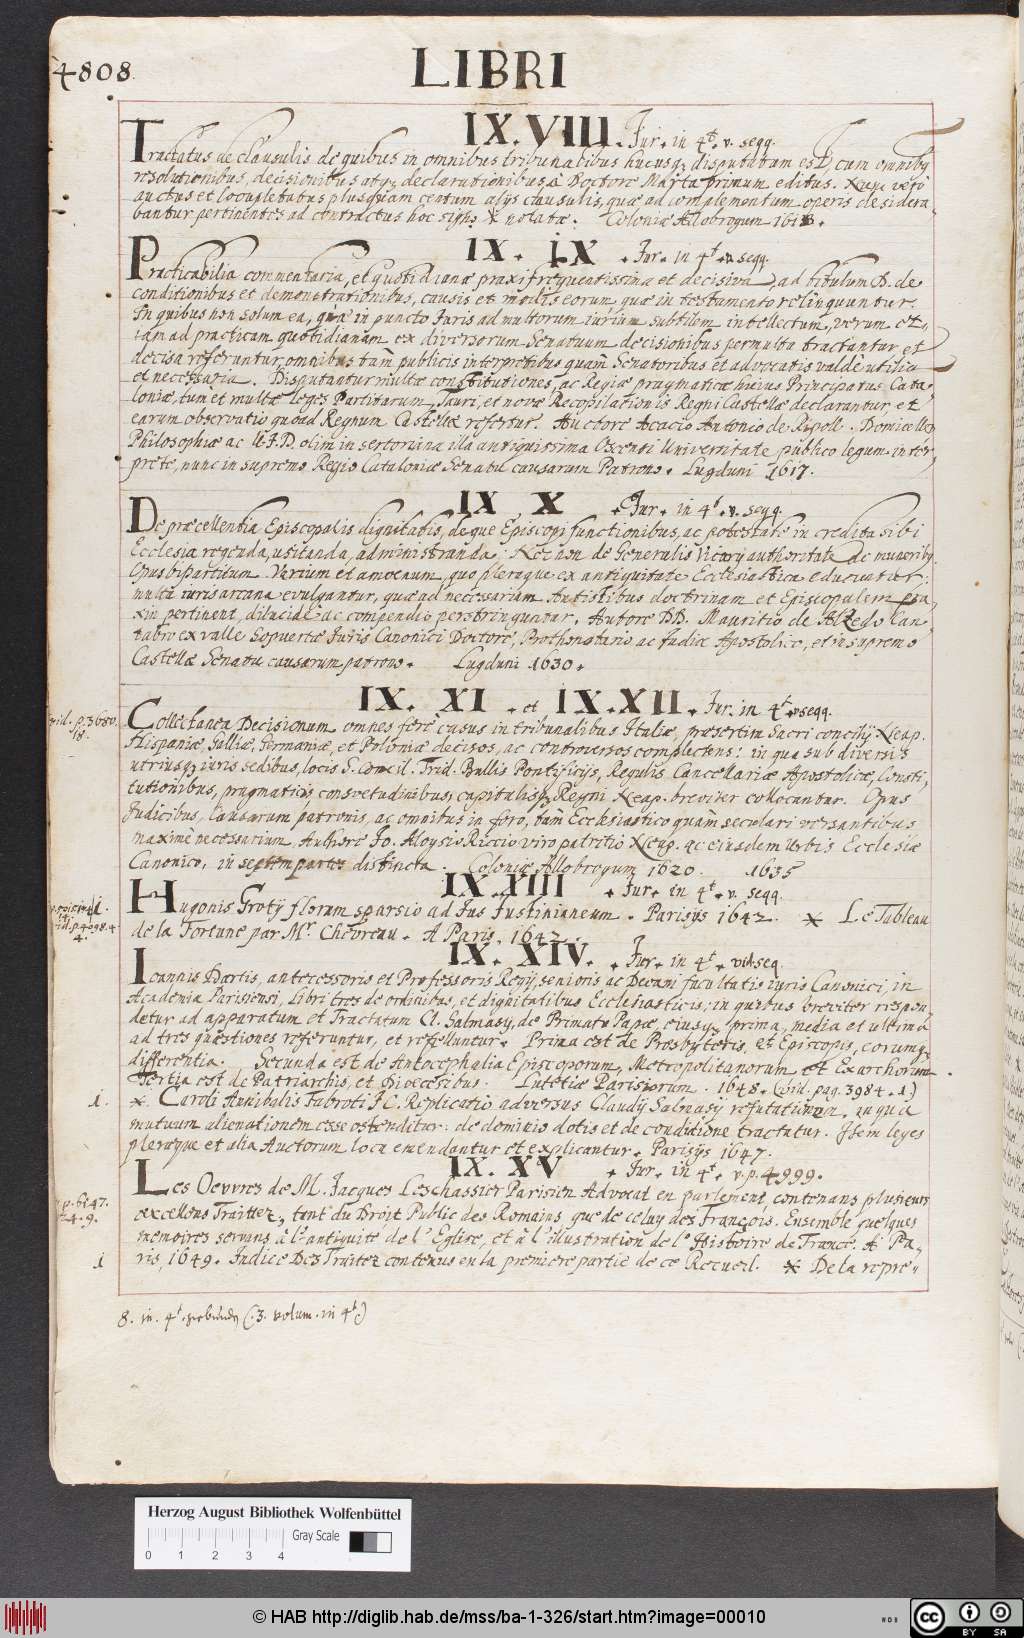 4808.
LIBRI
IX. VIII. Jur. in 4t. v. seqq.
Tractatus de clausulis de quibus in omnibus tribunalibus hucusq; disputatum est, cum omnibq
resolutionibus, decisionibus atq; declarationibus, à Doctore Marta primum editus. Nunc verò
auctus et locupletatus plusquam centum alijs clausulis, quæ ad complementum operis desidera-
bantur, pertinentes ad contractus hoc signo * notatæ. Coloniæ Allobrogum 1618.
IX. IX. Jur. in 4t. v. seqq.
Practicabilia commentaria, et quotidianæ praxi frequentissima et decisiva, ad titulum D. de
conditionibus et demonstrationibus, causis et modis eorum, quæ in testamento relinquuntur.
In quibus non solum ea, quæ in puncto Juris ad multorum iurium subtilem intellectum, verum et-
iam ad practicam quotidianam ex diversorum Senatuum decisionibus permulta tractantur et
decisa referuntur, omnibus tam publicis interpretibus quam Senatoribus et advocatis valde utilia
et necessaria. Disputantur multæ constitutiones, ac Regiæ pragmaticæ huius Principatus Cata-
loniæ, tum et multæ leges Partitarum, Tauri, et novæ Recopilationis Regni Castellæ declarantur, et
earum observatio quoad Regnum Castellæ refertur. Auctore Acacio Antonio de Ripoll. Domicello
Philosophiæ ac U.J.D. olim in sertoriana illa antiquissima Oscenti Universitate publico legum inter-
prete, nunc in supremo Regio Cataloniæ Senatu causarum Patrono. Lugduni 1617.
IX X Jur. in 4t. v. seqq.
De præcellentia Episcopalis dignitatis, deque Episcopi functionibus, ac potestate in credita sibi
Ecclesia regenda, visitanda, administranda. Necnon de Generalis Vicarij authoritate ac muneribq.
Opus bipartitum. Varium et amoenum, quo pleraque ex antiquitate Ecclesiastica educuntur;
multa iuris arcana evulgantur, quæ ad necessariam Antistibus doctrinam et Episcopalem pra-
xin pertinent, dilucide ac compendio perstringuntur. Autore DD. Mauritio de Alzedo Can-
tabro ex valle Sopuertæ Juris Canonici Doctore, Prothonotario ac Judice Apostolico, et in supremo
Castellæ Senatu causarum patrono. Lugduni 1630.
IX. XI. et IX. XII. Jur. in 4t. v. seqq.
vid. p. 3680.
18.
Collectanea Decisionum omnes ferè casus in tribunalibus Italiæ, præsertim Sacri concilij Neap.
Hispaniæ, Galliæ, Germaniæ, et Poloniæ decisos, ac controversos complectens: in qua sub diversis
utriusq; iuris sedibus, locis S. Concil. Trid. Bullis Pontificijs, Regulis Cancellariæ Apostolicæ, Consti-
tutionibus, pragmaticis, consvetudinibus, capitulisq; Regni Neap. breviter collocantur. Opus
Judicibus, Causarum patronis, ac omnibus in foro, tam Ecclesiastico quam seculari versantibus
maximè necessarium. Authore Jo. Aloysio Riccio viro patritio Neap. ac eiusdem Urbis Ecclesiæ
Canonico, in septem partes distincta. Coloniæ Allobrogum 1620. 1635
IX. XIII Jur. in 4t. v. seqq.
1.
Hugonis Grotij florum sparsio ad Jus Justinianeum. Parisijs 1642. * Le Tableau
de la Fortune par Mr. Chevreau. A Paris. 1642.
IX. XIV. Jur. in 4t. vid. seq.
Ioannis Dartis, antecessoris et Professoris Regij, senioris ac Decani facultatis iuris Canonici, in
Academia Parisiensi, Libri tres de ordinibus, et dignitatibus Ecclesiasticis; in quibus breviter respon-
detur ad apparatum et Tractatum Cl. Salmasij, de Primatu Papæ, eiusq; prima, media et ultima
ad tres quæstiones referuntur, et refelluntur. Prima est de Presbyteris et Episcopis, eorumq;
differentia. Secunda est de Autocephalia Episcoporum, Metropolitanorum et Exarchorum.
Tertia est de Patriarchis, et Dioecesibus. Lutetiæ Parisiorum. 1648. (vid. pag. 3984. 1.)
1.
* Caroli Annibalis Fabroti JC. Replicatio adversus Claudij Salmasij refutationem, in qua
mutuum alienationem esse ostenditur: de dominio dotis et de conditione tractatur. Item leges
pleræque et alia Auctorum loca emendantur et explicantur. Parisijs 1647.
IX. XV Jur. in 4t. v. p. 4999.
Les Oevvres de M. Jacques Leschassier Parisien Advocat en parlement, contenans plusieurs
excellens Traittez, tant du Droit Public des Romains que de celuy des François. Ensemble quelques
memoires servans à l'antiquité de l'Eglise, et à l'illustration de l'Histoire de France. A Pa-
ris, 1649. Indice Des Traitez contenus en la premiere partie de ce Recueil. * De la repre-
p. 6147.
4. 9.
1
8. in 4t. (. 3. volum. in 4t.)
Herzog August Bibliothek Wolfenbüttel
Gray Scale
0 1 2 3 4
© HAB http://diglib.hab.de/mss/ba-1-326/start.htm?image=00010
WDB
cc BY SA